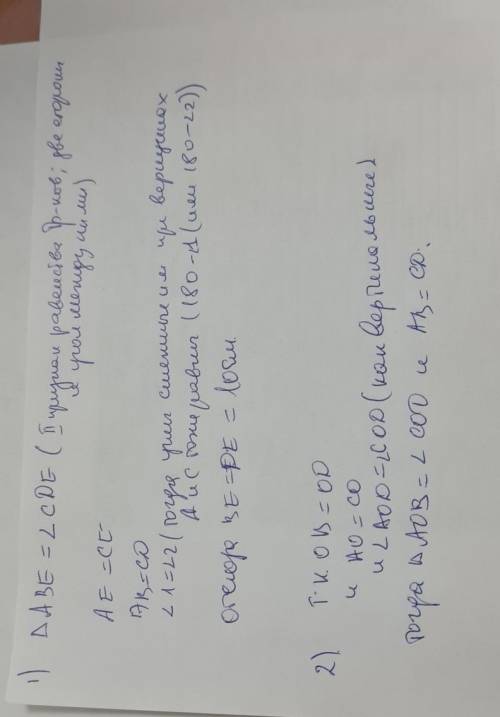 1) ΔABE = ∠CDE ( I признак равенства Δр-ков; две стороны
и угол между ними)
AE = CE
AB = CD
∠1 = ∠2 ( тогда углы смежные им при вершинах
A и C тоже равны (180 - ∠1 (или 180 - ∠2))
отсюда BE = DE = 10 см.
2) Т.к. OB = OD
и AO = CO
и ∠AOD = ∠COD (как вертикальные)
тогда ΔAOB = ∠COD и AB = CD.